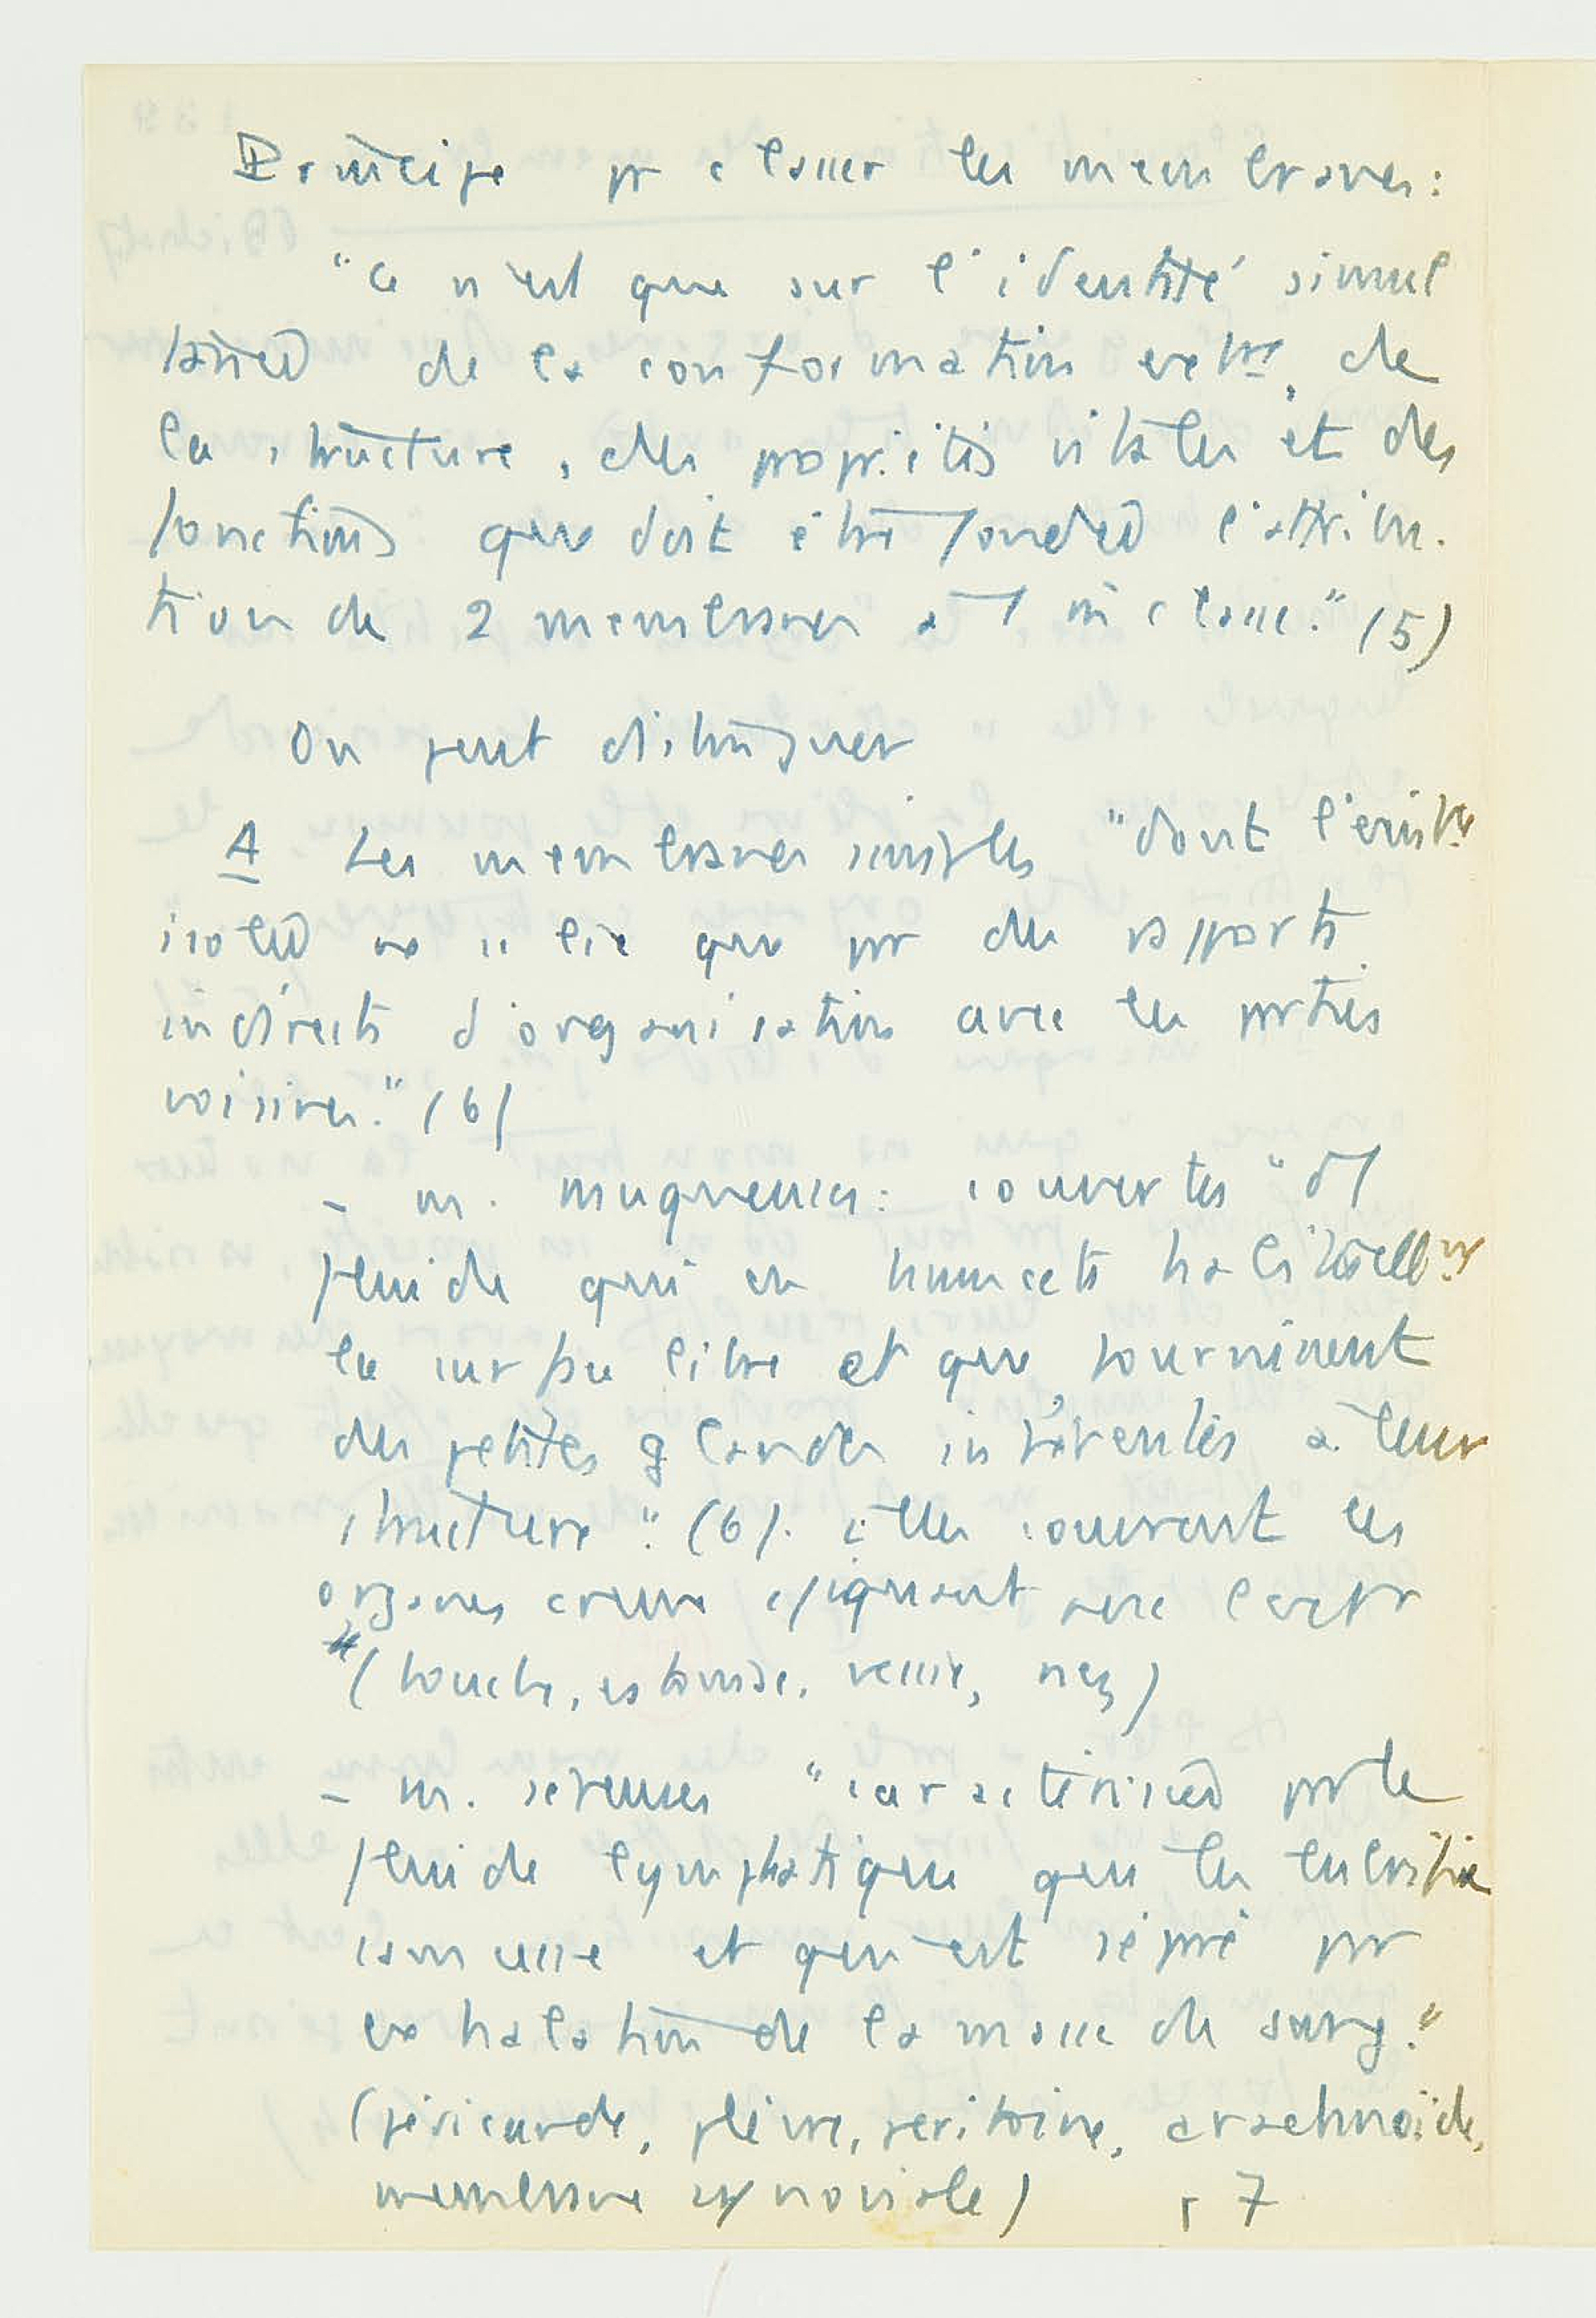 Principe pr classer les membranes :
"Ce n'est que sur l'identité simul
tanée de la conformation extre, de
la structure, des propriétés vitales et des
fonctions que doit être fondée l'attribu-
tion de 2 membranes à 1 m classe." (5)
On peut distinguer
A Les membranes simples "dont l'existce
isolée ne se lie que par des rapports
indirects d'organisation avec les parties
voisines." (6)
- m. muqueuses : couvertes "d'1
fluide qui en humecte habituellmt
la surface libre et que fournissent
des petites glandes inhérentes à leur
structure". (6). elles couvrent les
organes creux cyiquant avec l'extr
(bouche, estomac, vessie, nez)
- m. séreuses "caractérisées par le
fluide lymphatique qui les lubrifie
sans cesse et qui est séparé par
exhalation de la masse du sang."
(péricarde, plèvre, péritoine, arachnoïde,
membrane synoviale) p 7